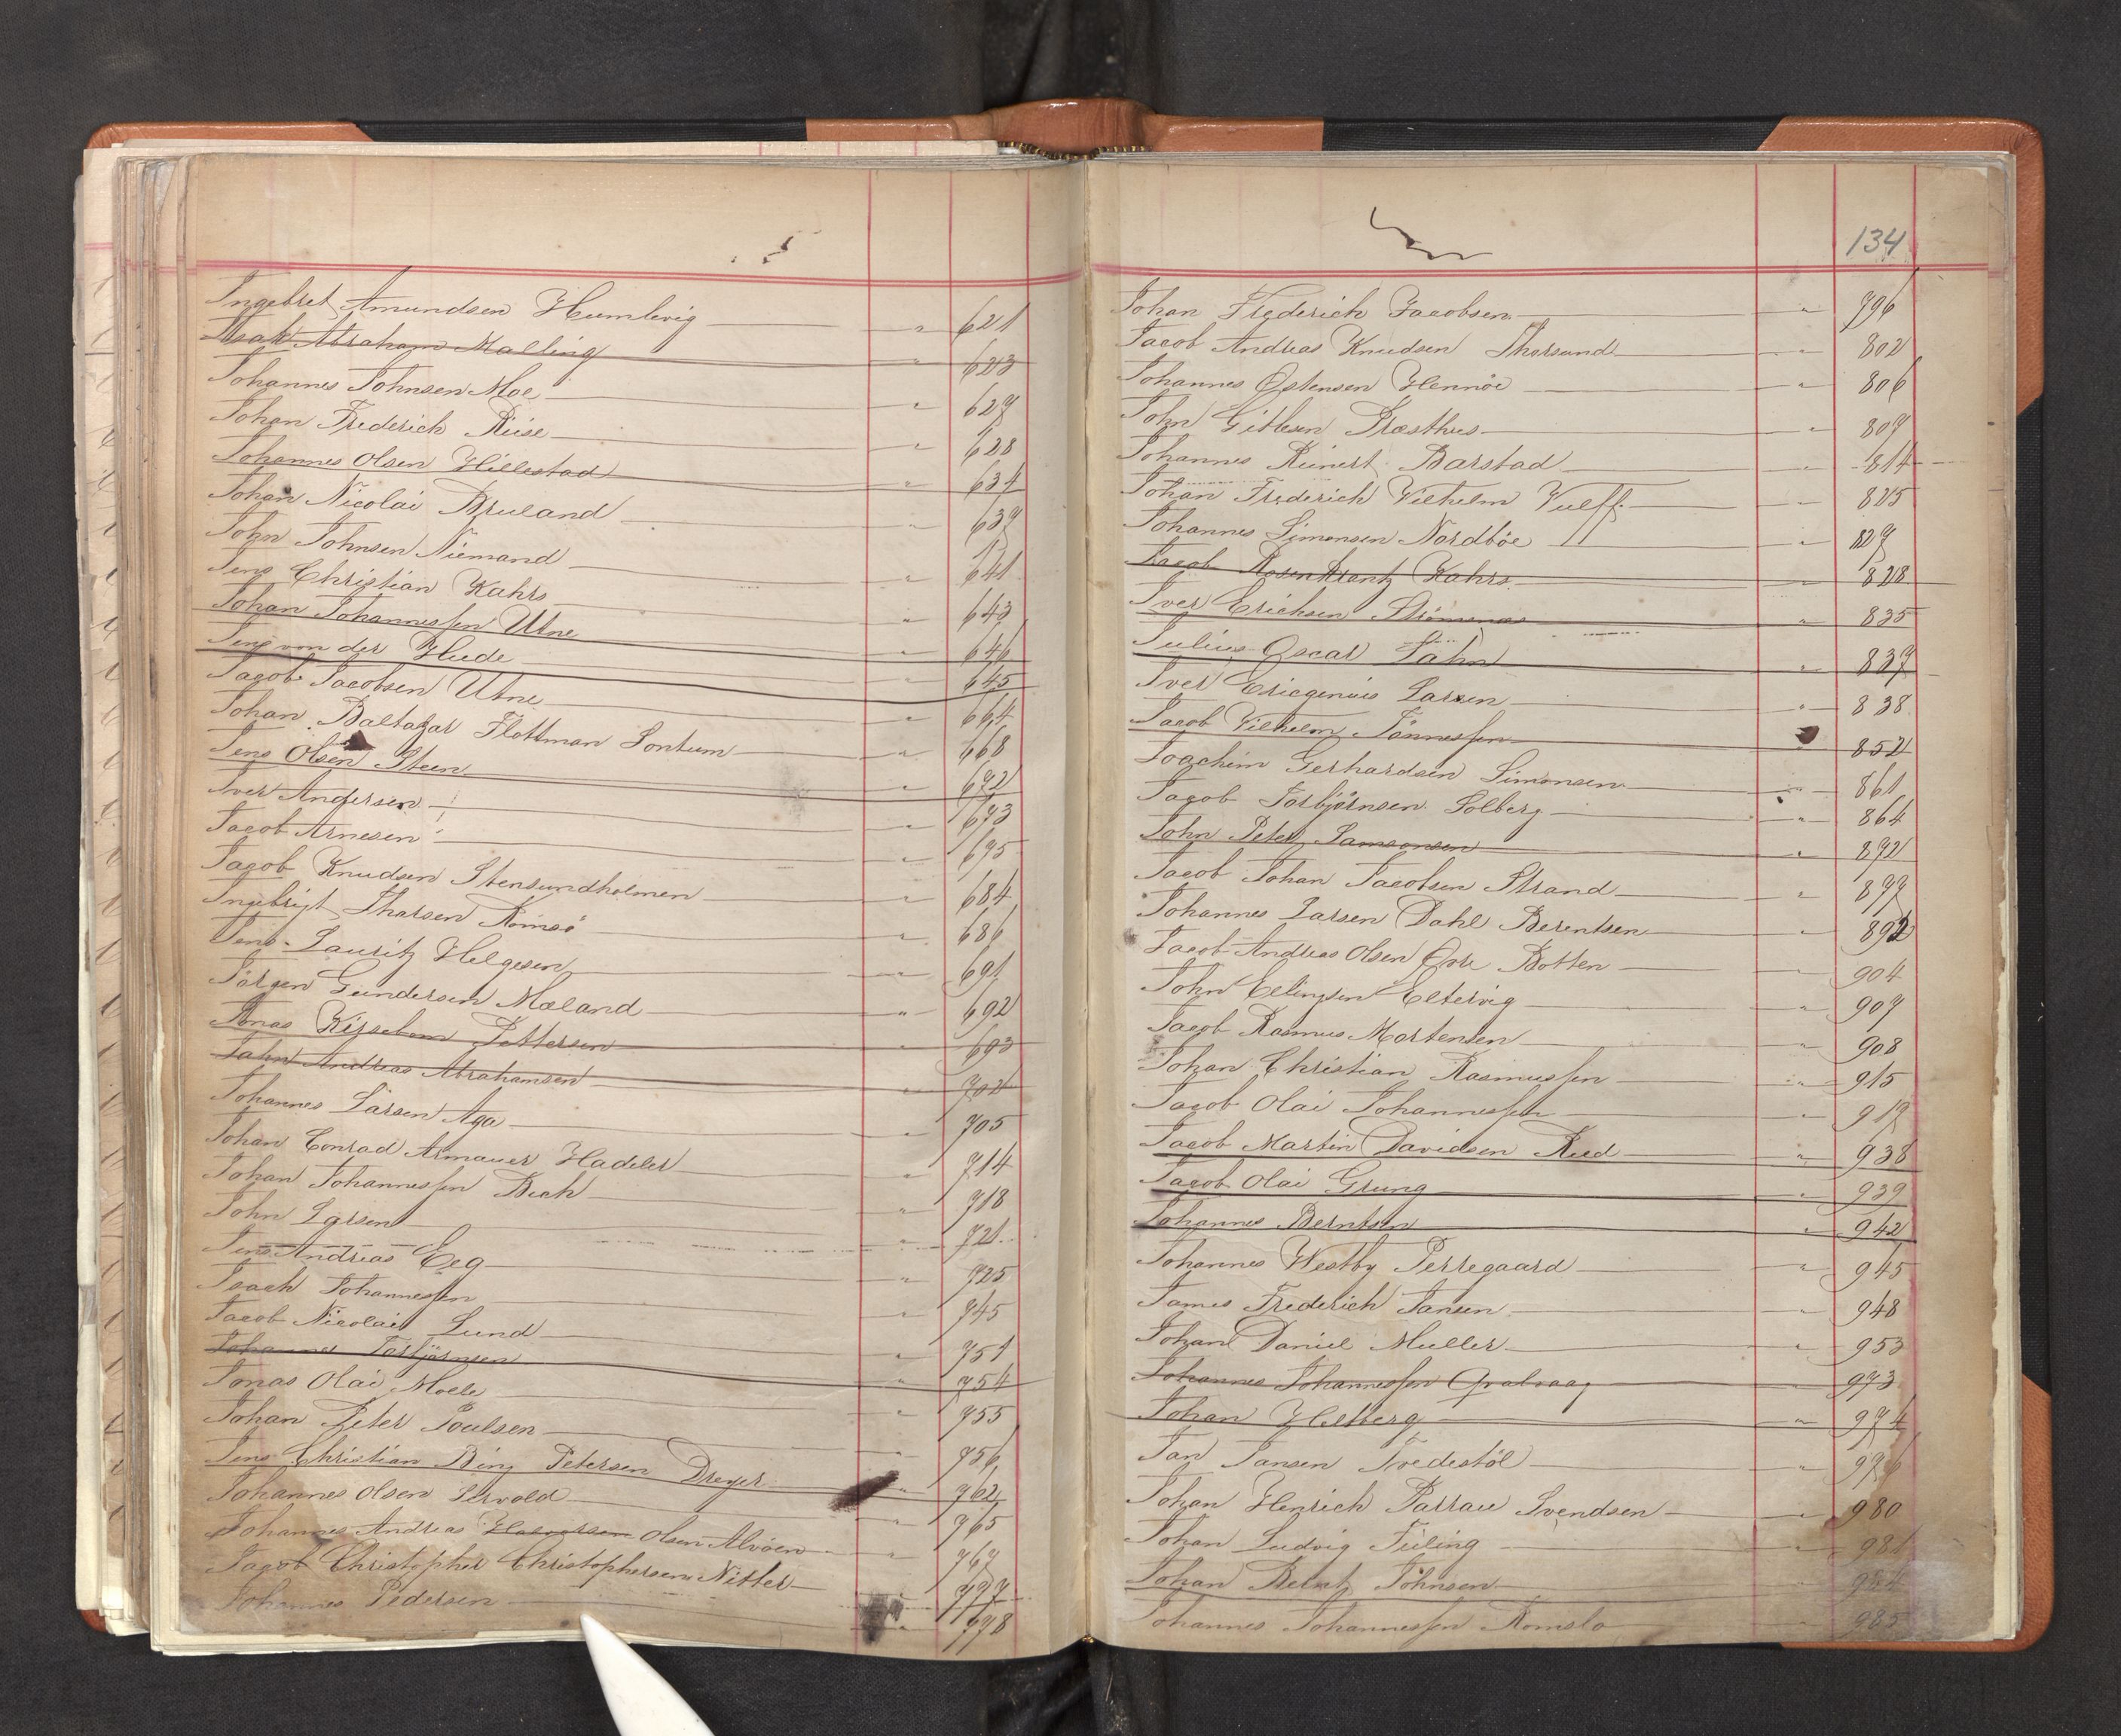 Ingebret Amundsen Humlevig " 621
Isak Abraham Malling " 623
Johannes Johnsen Moe " 627
Johan Frederich Riise " 628
Johannes Olsen Hillestad " 634
Johan Nicolai Bruland " 637
John Johnsen Niemand " 641
Jens Christian Kahrs " 643
Johan Johannessen Utne " 646
Jens von der Hude " 645
Jacob Jacobsen Utne " 664
Johan Baltazar Flottman Sontum " 668
Jens Olsen Steen " 672
Iver Andersen " 673
Jacob Arnesen " 675
Jacob Knudsen Stensundholmen " 684
Ingebrigt Tharsen Romsö " 686
Jens Lauritz Helgesen " 691
Jörgen Gundersen Mæland " 692
Jonas Pettersen " 693
John Andreas Abrahamsen " 702
Johannes Larsen Aga " 705
Johan Conrad Armauer Hadeler " 714
Johan Johannessen Beck " 718
John Larsen " 721
Jens Andreas Eeg " 725
Isach Johannessen " 745
Jacob Nicolai Lund " 751
Johannes Torbjörnsen " 754
Jonas Olai Moele " 755
Johan Peter Poulsen " 756
Jens Christian Bing Petersen Dreyer " 762
Johannes Olsen Lervold " 765
Johannes Andreas Halvorsen Olsen Alvöen " 767
Jacob Christopher Christophersen Nitter " 777
Johannes Pedersen " 778
134
Johan Frederich Jacobsen " 796
Jacob Andreas Knudsen Thorsund " 802
Johannes Östensen Hennöe " 806
John Gitlesen Præsthus " 807
Johannes Reinert Barstad " 814
Johan Frederich Vilhelm Vulff " 825
Johannes Simonsen Nordböe " 827
Jacob Rosenkrantz Kahrs " 828
Iver Erichsen Strömsnæs " 835
Julius Oscar Jahn " 837
Iver Larsen " 838
Jacob Vilhelm Tönnessen 852
Joachim Gerhardsen Simonsen " 861
Jacob Torbjörnsen Solberg " 864
John Peter Samsonsen " 872
Jacob Johan Jacobsen Strand " 877
Johannes Larsen Dahl Berentsen " 892
Jacob Andreas Olsen Övre Botten " 904
John Ellingsen Eltervig " 907
Jacob Rasmus Mortensen " 908
Johan Christian Rasmussen " 915
Jacob Olai Johannessen " 917
Jacob Martin Davidsen Reed " 938
Jacob Olai Grung " 939
Johannes Berntsen " 942
Johannes Westby Perregaard " 945
James Frederich Jansen " 948
Johan Daniel Muller " 953
Johannes Johannessen 973
Johan Heltberg " 974
Jan Jansen Tvedestöl " 976
Johan Henrich Parrau Svendsen " 980
Johan Ludvig Füling " 981
Johan Berntz Johnsen " 984
Johannes Johannessen Romslo " 985